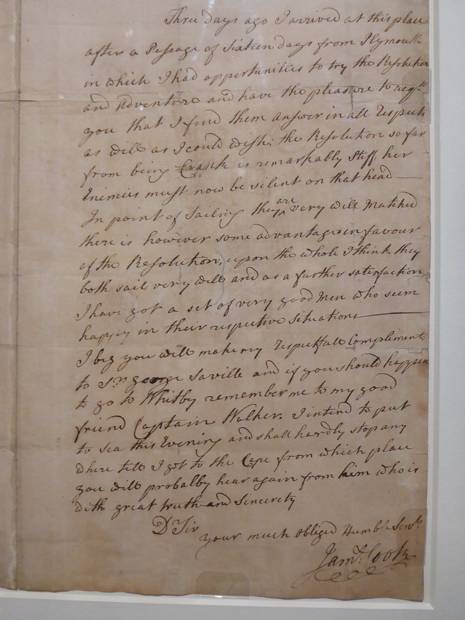 Three days ago I arrived at this place
after a Passage of Sixteen days from Plymouth
in which I had oppertunities to try the Resolution
and Adventure and have the pleasure to
you that I find them answer in all respects
as well as I could wish, the Resolution so far
from being Crank is remarkably Stiff her
Enimies must now be silent on that head
In point of Sailing they are very well Matched
there is however some advantages in favour
of the Resolution, upon the whole I think they
both sail very well and as a further satisfaction
I have got a set of very good men who seem
happy in their respective Situations
I beg you will make my respectfull Compliments
to Sr. George Saville and if you should happen
to go to Whitby remember me to my good
friend Captain Walker. I intend to put
to sea this Evening and shall hardly stop any
where till I get to the Cape from which place
you will probalby hear again from him who is
with great truth and Sincerity
Dr Sir
your much Obliged Humble Servt.
Jams. Cook